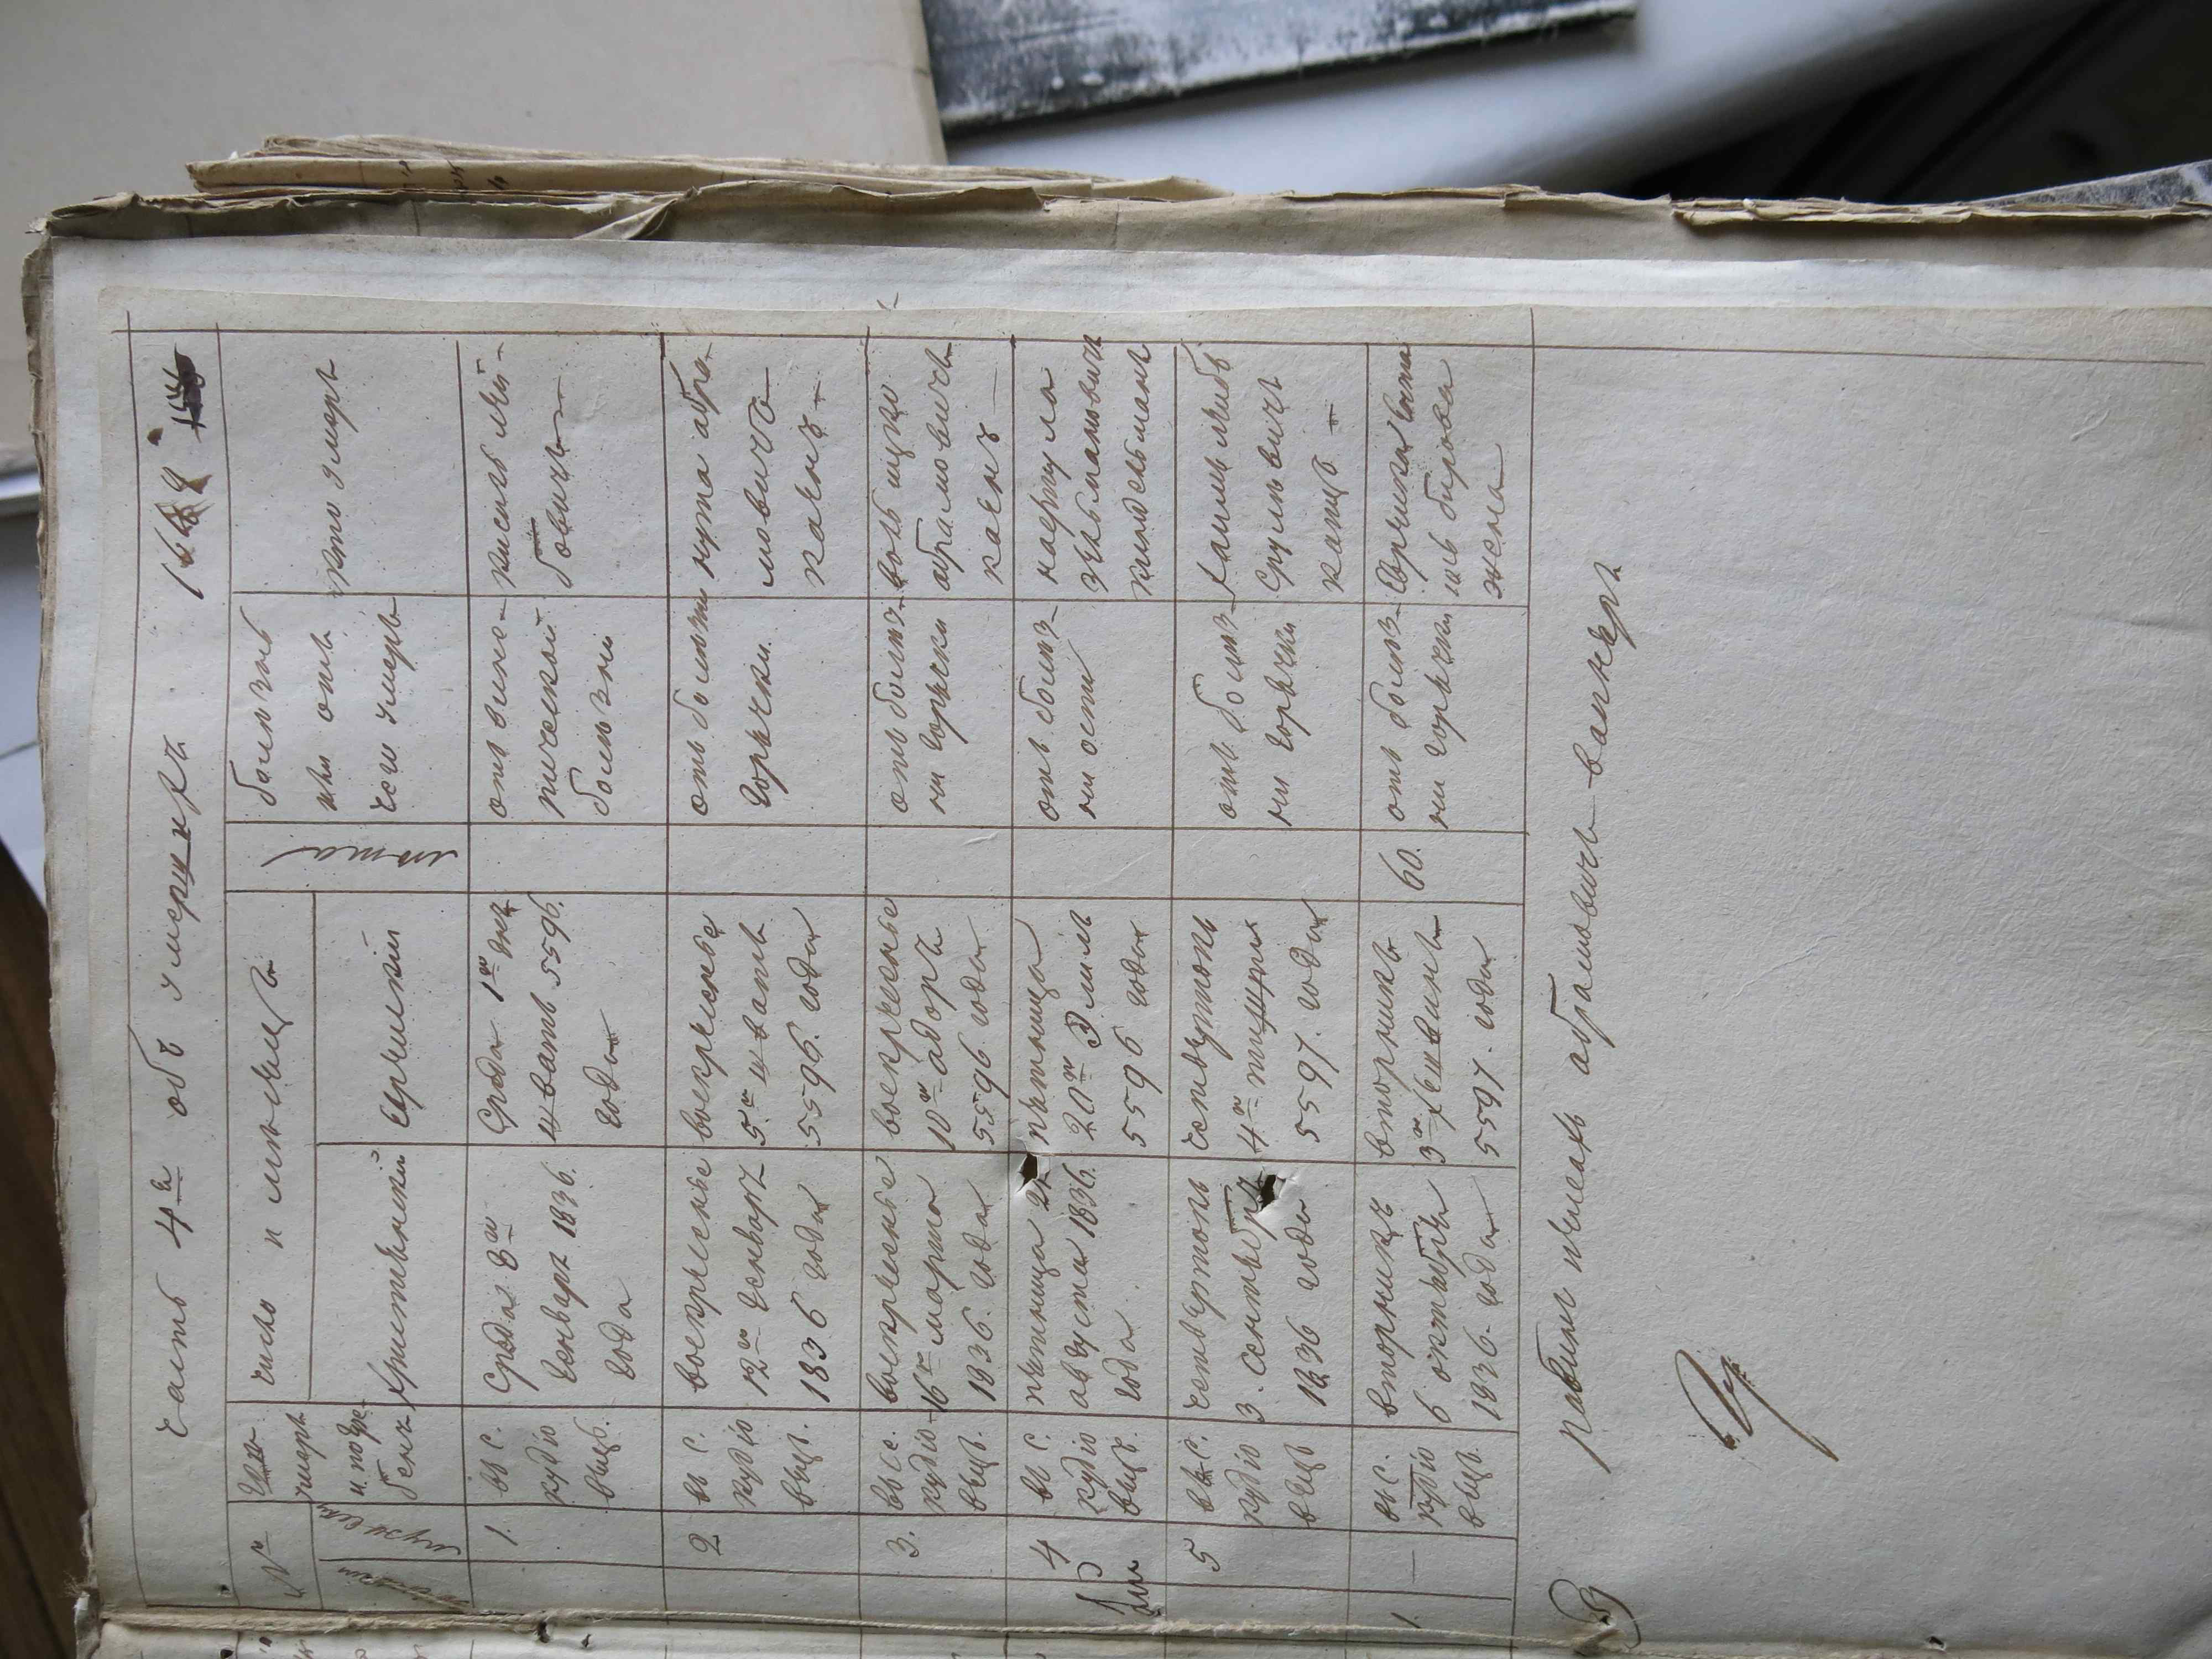 часть 4я объ умершихъ
№
женски
мужески
умеръ
и погре-
бенъ
число и мѣсяцъ
христіянскій
еврейскій
лѣта
болѣзнь
или отъ
чего умеръ
кто умеръ
1.
въ с.
кудріо
вецъ.
Среда 8го
Генваря 1836.
года
Среда 1го дня
шватъ 5596.
года
отъ
пической
болѣзни
кисиль лей-
бовичъ
2
въ с.
кудріо
вецъ.
воскресенье
12го Генваря
1836 года
воскресенье
5го шватъ
5596. года
отъ болезни
горячки.
нута абра-
мовичъ
каенъ
3.
въ с.
кудріо
вецъ.
воскресенье
16го марта
1836. года
воскресенье
10го адоръ
5596. года
отъ болез-
ни горячки
волъ ицко
абрамовичъ
каенъ
4
въ с.
кудріо
вецъ.
пятница 21
августа 1836.
года
пятница
20го Элилъ
5596 года
отъ болез-
ни оспи
нахмула
зельмановичъ
киндельманъ
5
въ с.
кудріо
вецъ
четвертокъ
3. сентебря
1836 года
четвертокъ
4го тишри
5597. года
отъ болез-
ни горячки
хаимъ лейбъ
Срулевичъ
капцъ
1.
—
въ с.
кудріо
вецъ.
вторникъ
6 октября
1836. года
вторникъ
3го хешвинъ
5597. года
60.
отъ болез-
ни горячки
еврейка
бирова
жена
рабинъ абрамовичъ вагнеръ